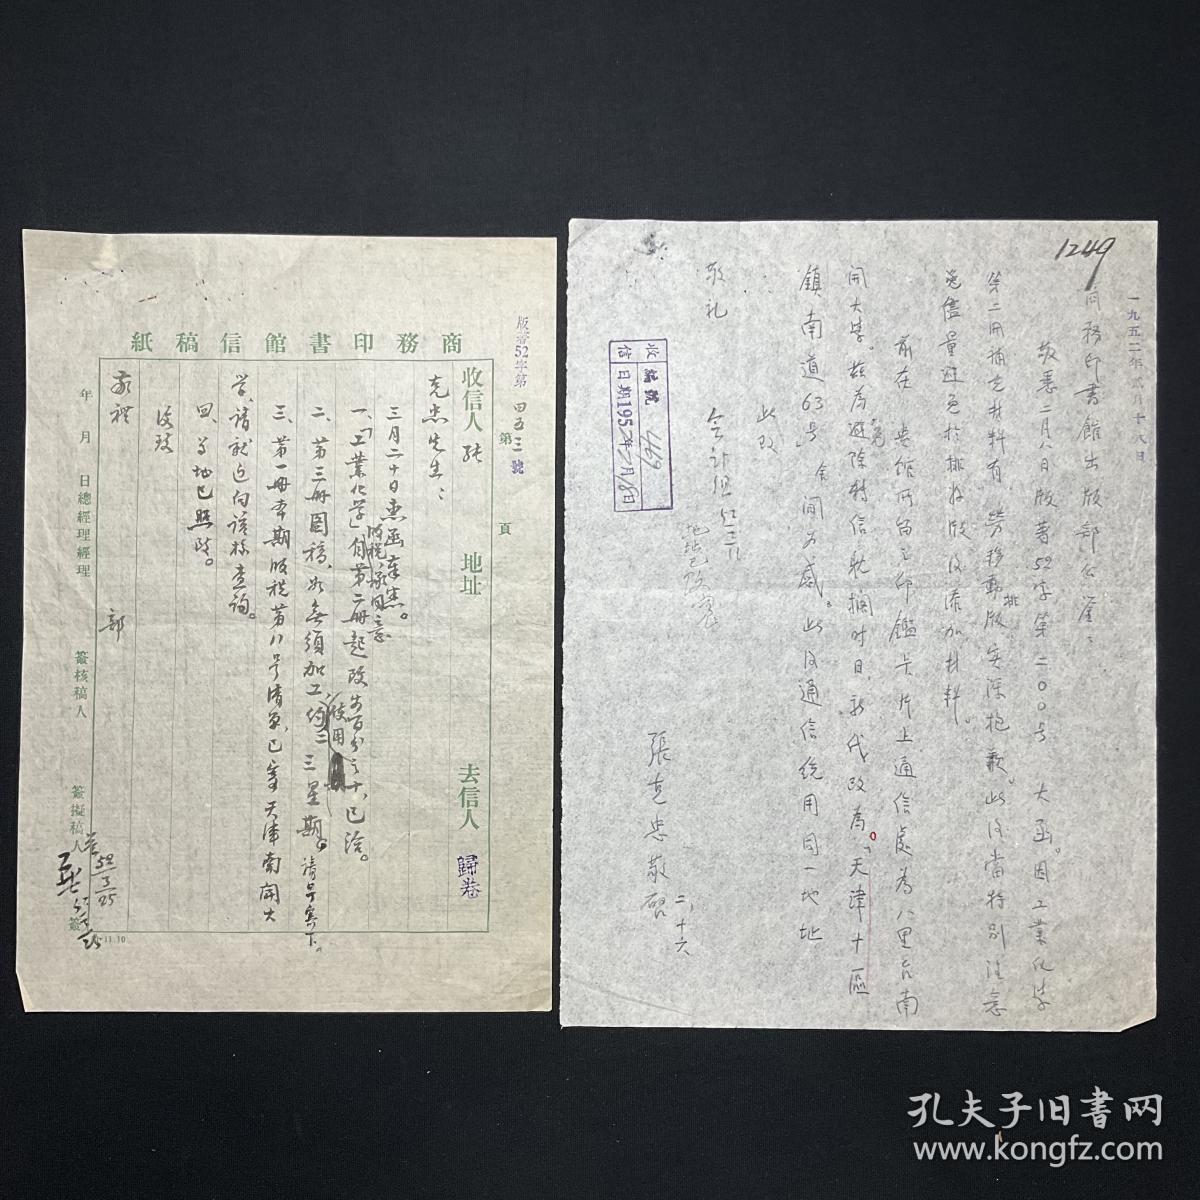 版著52字第四五三號
第 頁
商務印書館信稿紙
收信人 張 地址 去信人 歸卷
克忠先生：
三月二十日惠函奉悉。
一、「工業化学」自第二册起改为百分之十,已洽。
版税,承同意
二、第三册图稿,如無須加工,约二三星期。請号寄下。
使用
三、第一册本期版税第八号清單,已寄天津南開大
学,請就近向該校查詢。
四、尊地已照改。
此致
敬禮
部
年 月 日總經理經理 簽核稿人 簽擬稿人 簽
52/3/25
11.10
1249
一九五二年贰月十八日
商務印書館出版部公鉴：
敬悉二月 日版著52字第二〇〇号大函。因工業化学
第二册補充材料有劳移動排版实深抱歉。此後當特别注意
尽量避免於排好版後添加材料。
前在貴館所留之印鑑卡片上通信處為八里台南
開大学。兹為避免轉信耽擱时日,祈代改為「天津十區
鎮南道63号」余間为感。此後通信统用同一地址
此致
敬礼
張克忠敬啓
二、十六
会计组
地址已改寫
收信
編號 469
日期1952年2月18日
孔夫子旧书网
www.kongfz.com